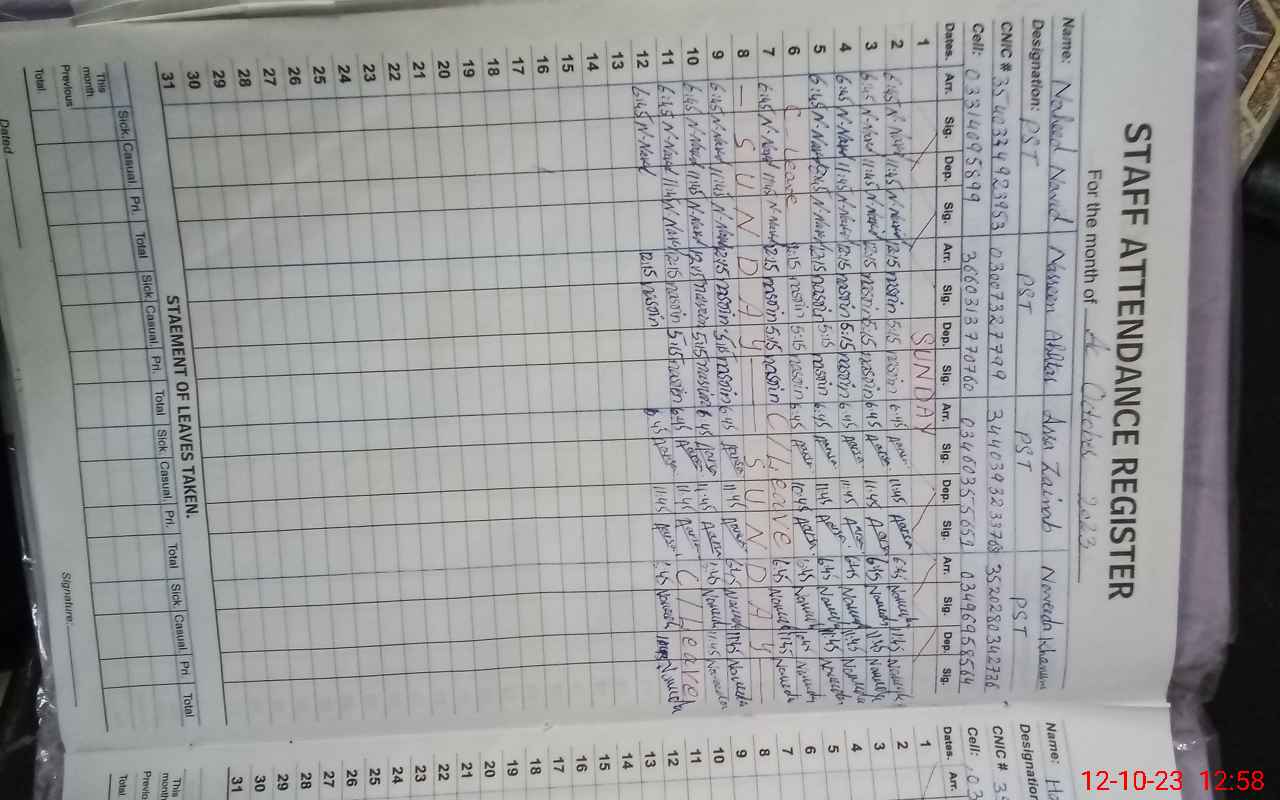 STAFF ATTENDANCE REGISTER
For the month of October 2023
Name: Naheed Navid Nasreen Akhtar Arsa Zainab Naveeda Khanum
Designation: PST PST PST PST
CNIC #
Cell: 03314095899 3660313770760 03460355659 03496958564
Dates. Arr. Sig. Dep. Sig. Arr. Sig. Dep. Sig. Arr. Sig. Dep. Sig. Arr. Sig. Dep. Sig.
1 SUNDAY
2 6:45 N.Navid 11:45 N.Navid 12:15 nasrin 5:15 nasrin 6:45 Aarsa 11:45 Aarsa 6:45 Naveeda 11:45 Naveeda
3 6:45 N.Navid 11:45 N.Navid 12:15 nasrin 5:15 nasrin 6:45 Aarsa 11:45 Aarsa 6:45 Naveeda 11:45 Naveeda
4 6:45 N.Navid 11:45 N.Navid 12:15 nasrin 5:15 nasrin 6:45 Aarsa 11:45 Aarsa 6:45 Naveeda 11:45 Naveeda
5 6:45 N.Navid N.Navid 12:15 nasrin 5:15 nasrin 6:45 Aarsa 11:45 Aarsa 6:45 Naveeda 11:45 Naveeda
6 C Leave 12:15 nasrin 5:15 nasrin 6:45 Aarsa 10:45 Aarsa 6:45 Naveeda Naveeda
7 6:45 N.Navid 11:45 N.Navid 12:15 nasrin 5:15 nasrin C/Leave 6:45 Naveeda 11:45 Naveeda
8 — SUNDAY — SUNDAY
9 6:45 N.Navid 11:45 N.Navid 12:15 nasrin 5:15 nasrin 6:45 Aarsa 11:45 Aarsa 6:45 Naveeda 11:45 Naveeda
10 6:45 N.Navid 11:45 N.Navid 12:15 nasrin 5:15 nasrin 6:45 Aarsa 11:45 Aarsa 6:45 Naveeda 11:45 Naveeda
11 6:45 N.Navid 11:45 N.Navid 12:15 nasrin 5:15 nasrin 6:45 Aarsa 11:45 Aarsa C/Leave
12 6:45 N.Navid 12:15 nasrin 6:45 Aarsa 11:45 Aarsa 6:45 Naveeda Naveeda
13
14
15
16
17
18
19
20
21
22
23
24
25
26
27
28
29
30
31
STAEMENT OF LEAVES TAKEN.
Sick Casual Pri. Total Sick Casual Pri. Total Sick Casual Pri. Total Sick Casual Pri Total
This month
Previous
Total
Dated
Signature:
Name:
Designation
CNIC #
Cell:
Dates. Arr.
1
2
3
4
5
6
7
8
9
10
11
12
13
14
15
16
17
18
19
20
21
22
23
24
25
26
27
28
29
30
31
This month
Total
12-10-23 12:58